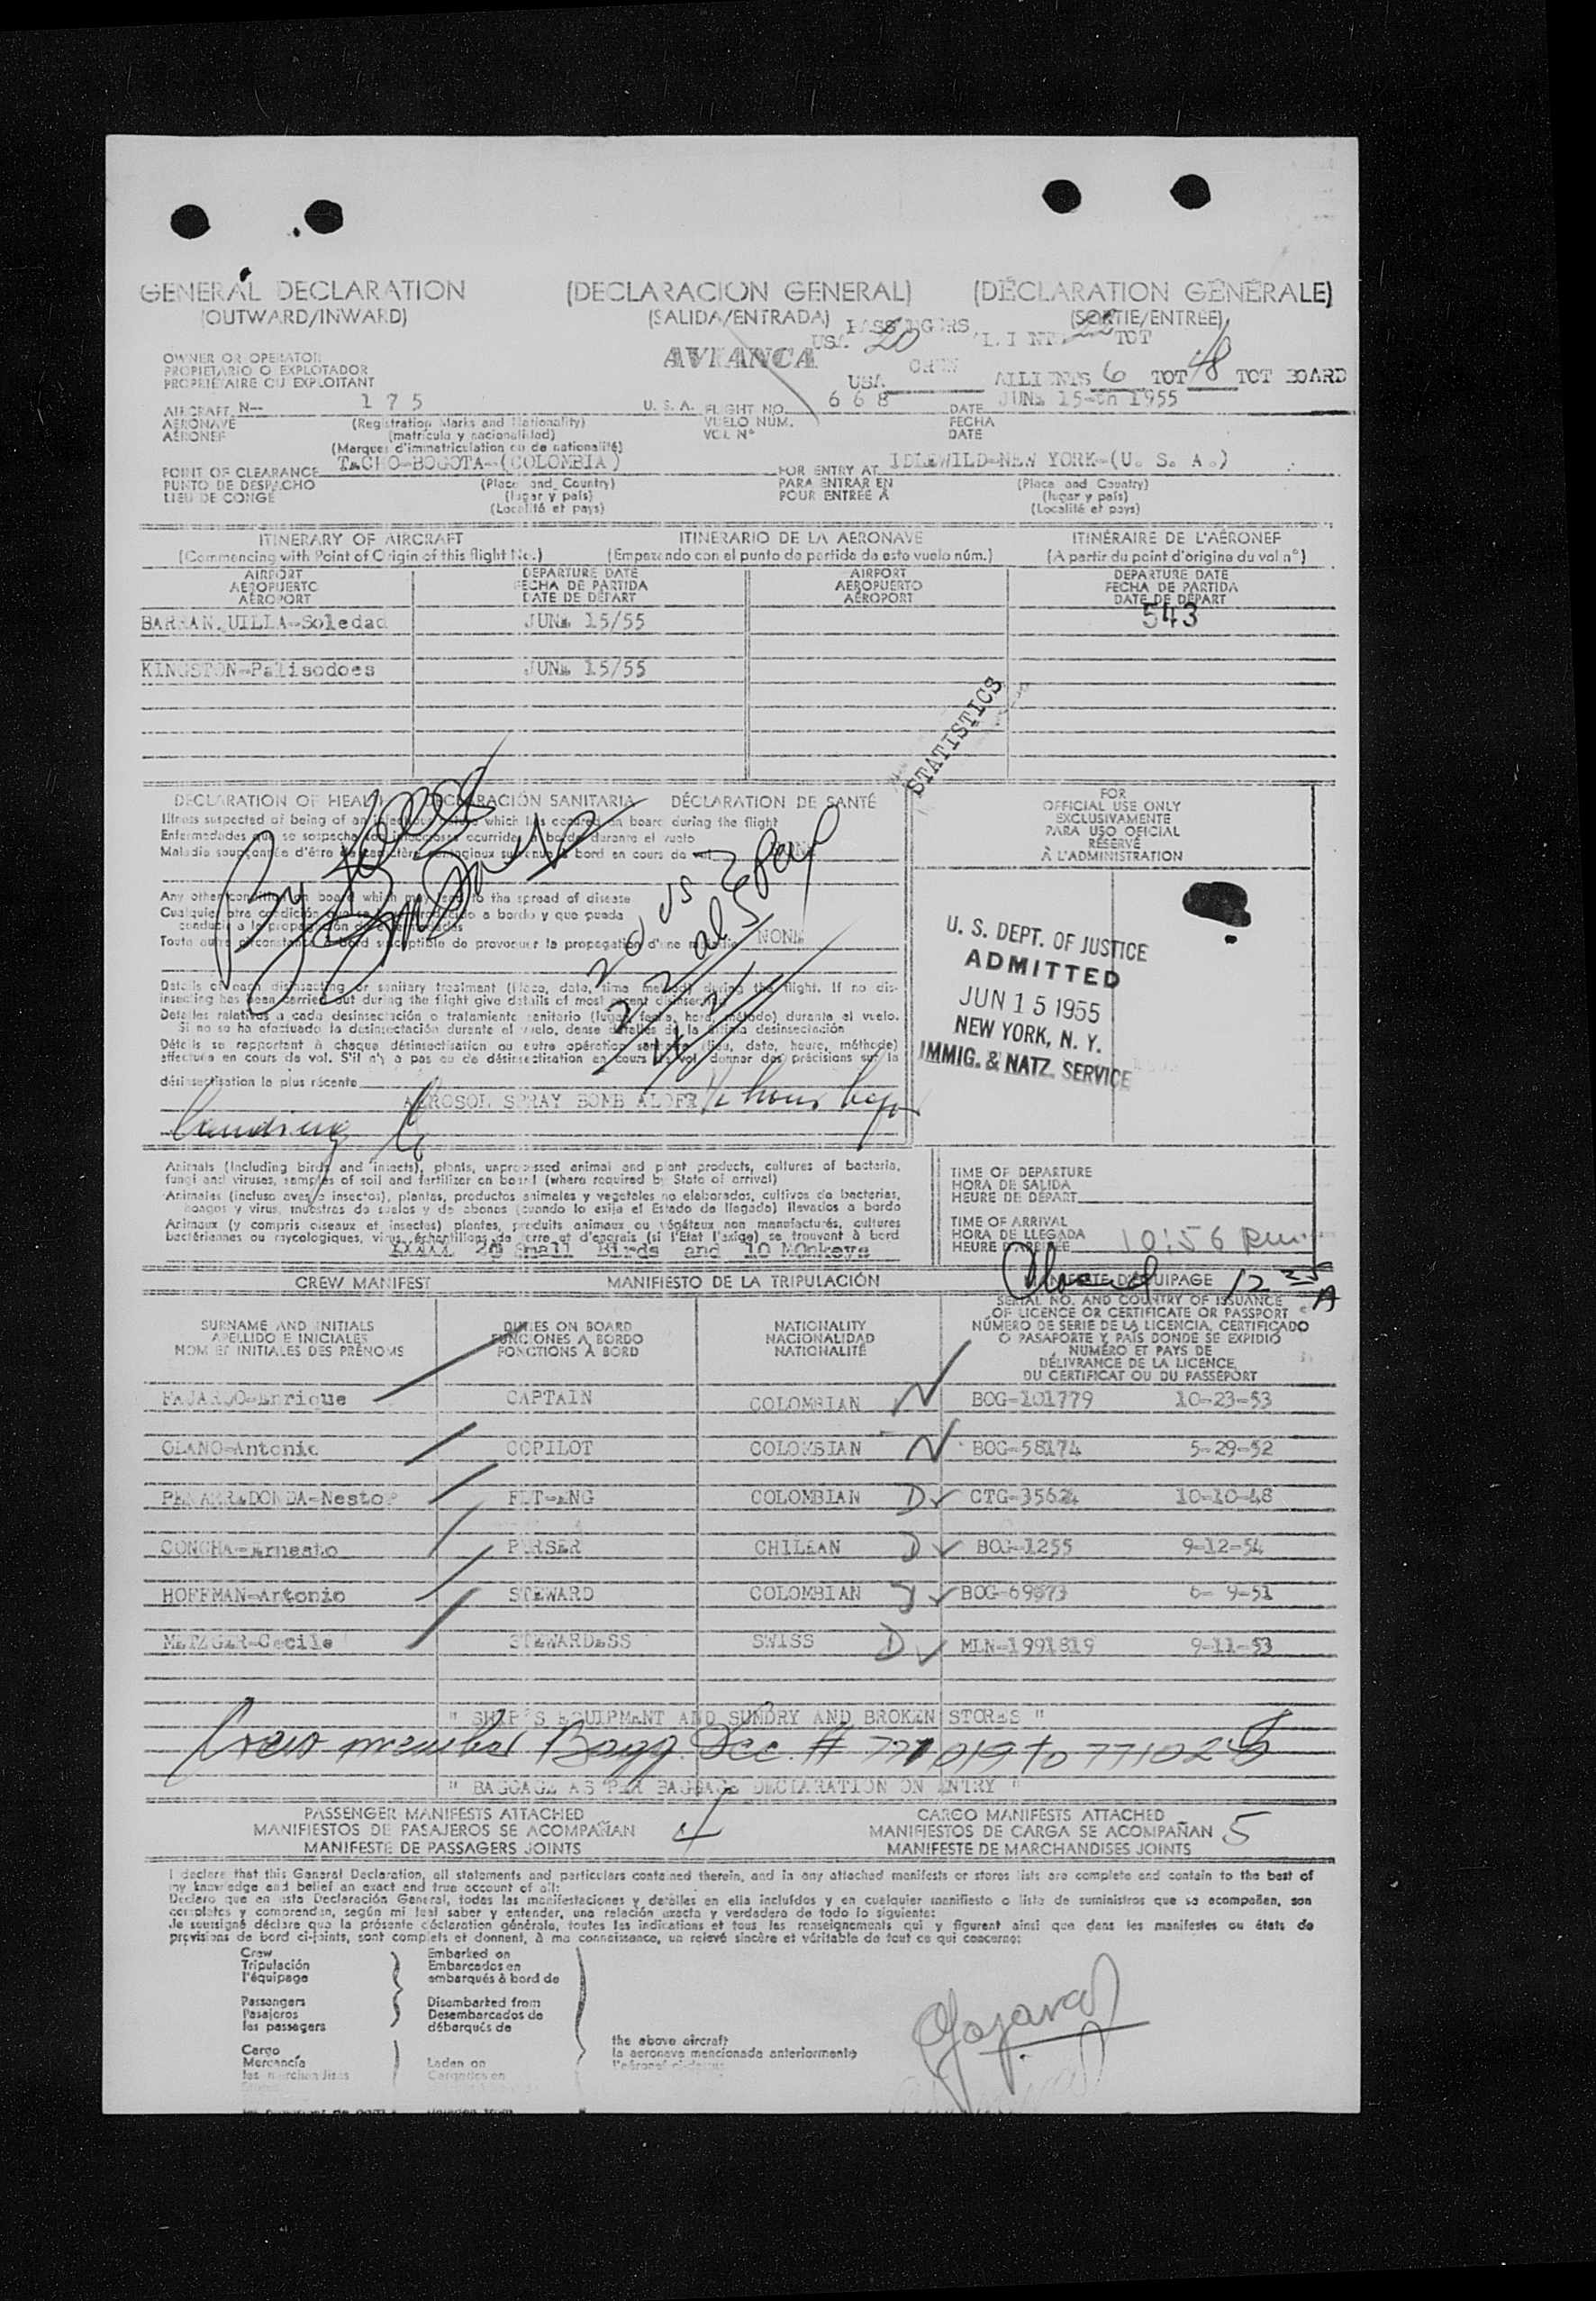 GENERAL DECLARATION (DECLARACION GENERAL) (DÉCLARATION GÉNÉRALE)
(OUTWARD/INWARD) (SALIDA/ENTRADA) (SORTIE/ENTRÉE)
PASSENGERS
USA 20 22 TOT
AVIANCA
OWNER OR OPERATOR
PROPIETARIO O EXPLOTADOR
PROPRIÉTAIRE OU EXPLOITANT
CREW
USA ALLIENTS 6 TOT 48 TOT BOARD
AIRCRAFT N-- 175 U. S. A. FLIGHT NO. 668 DATE JUNE 15-th 1955
AERONAVE (Registration Marks and Nationality) VUELO NÚM. FECHA
AÉRONEF (matrícula y nacionalidad) VOL N° DATE
(Marques d'immatriculation ou de nationalité)
POINT OF CLEARANCE TECHO-BOGOTA-(COLOMBIA) FOR ENTRY AT IDLEWILD-NEW YORK-(U. S. A.)
PUNTO DE DESPACHO (Place and Country) PARA ENTRAR EN (Place and Country)
LIEU DE CONGÉ (lugar y país) POUR ENTRÉE À (lugar y país)
(Localité et pays) (Localité et pays)
ITINERARY OF AIRCRAFT ITINERARIO DE LA AERONAVE ITINÉRAIRE DE L'AÉRONEF
(Commencing with Point of Origin of this flight No.) (Empezando con el punto de partida de este vuelo núm.) (A partir du point d'origine du vol n°)
AIRPORT DEPARTURE DATE AIRPORT DEPARTURE DATE
AEROPUERTO FECHA DE PARTIDA AEROPUERTO FECHA DE PARTIDA
AÉROPORT DATE DE DÉPART AÉROPORT DATE DE DÉPART
543
BARRANQUILLA-Soledad JUNE 15/55
KINGSTON-Palisodoes JUNE 15/55
STATISTICS
DECLARATION OF HEALTH DECLARACIÓN SANITARIA DÉCLARATION DE SANTÉ
Illness suspected of being of an infectious nature which has occured on board during the flight
Enfermedades que se sospecha son infecciosas ocurridas a bordo durante el vuelo
Maladie soupçonnée d'être de caractère contagieux survenue à bord en cours de vol
Any other condition on board which may lead to the spread of disease
Cualquier otra condición que se haya producido a bordo y que pueda
conducir a la propagación de enfermedades
Toute autre circonstance à bord susceptible de provoquer la propagation d'une maladie NONE
20 US
Details of each disinsecting or sanitary treatment (place, date, time method) during the flight. If no dis-
insecting has been carried out during the flight give details of most recent disinsecting
Detalles relativos a cada desinsectación o tratamiento sanitario (lugar, fecha, hora, método) durante el vuelo.
Si no se ha efectuado la desinsectación durante el vuelo, dense detalles de la última desinsectación
Détails se rapportant à chaque désinsectisation ou autre opération sanitaire (lieu, date, heure, méthode)
effectuée en cours de vol. S'il n'y a pas eu de désinsectisation en cours de vol donner des précisions sur la
désinsectisation la plus récente
AEROSOL SPRAY BOMB ALOFT 1/2 hour before
landing
FOR
OFFICIAL USE ONLY
EXCLUSIVAMENTE
PARA USO OFICIAL
RÉSERVÉ
À L'ADMINISTRATION
U. S. DEPT. OF JUSTICE
ADMITTED
JUN 15 1955
NEW YORK, N. Y.
IMMIG. & NATZ. SERVICE
Animals (Including birds and insects), plants, unprocessed animal and plant products, cultures of bacteria,
fungi and viruses, samples of soil and fertilizer on board (where required by State of arrival)
Animales (incluso aves e insectos), plantas, productos animales y vegetales no elaborados, cultivos de bacterias,
hongos y virus, muestras de suelos y de abonos (cuando lo exija el Estado de llegada) llevados a bordo
Animaux (y compris oiseaux et insectes) plantes, produits animaux ou végétaux non manufacturés, cultures
bactériennes ou mycologiques, virus, échantillons de terre et d'engrais (si l'Etat l'exige) se trouvant à bord
20 Small Birds and 10 Monkeys
TIME OF DEPARTURE
HORA DE SALIDA
HEURE DE DÉPART
TIME OF ARRIVAL
HORA DE LLEGADA
HEURE D'ARRIVÉE 10:56 pm
CREW MANIFEST MANIFIESTO DE LA TRIPULACIÓN MANIFESTE D'ÉQUIPAGE
SURNAME AND INITIALS DUTIES ON BOARD NATIONALITY SERIAL NO. AND COUNTRY OF ISSUANCE
APELLIDO E INICIALES FUNCIONES A BORDO NACIONALIDAD OF LICENCE OR CERTIFICATE OR PASSPORT
NOM ET INITIALES DES PRÉNOMS FONCTIONS À BORD NATIONALITÉ NÚMERO DE SERIE DE LA LICENCIA, CERTIFICADO
O PASAPORTE Y PAÍS DONDE SE EXPIDIÓ
NUMÉRO ET PAYS DE
DÉLIVRANCE DE LA LICENCE,
DU CERTIFICAT OU DU PASSEPORT
FAJARDO-Enrique CAPTAIN COLOMBIAN BOG-101779 10-23-53
OLANO-Antonio COPILOT COLOMBIAN BOG-58174 5-29-52
PENARREDONDA-Nestor FLT-ENG COLOMBIAN D CTG-35624 10-10-48
CONCHA-Ernesto PURSER CHILEAN D BOG-1255 9-12-54
HOFFMAN-Antonio STEWARD COLOMBIAN BOG-69873 6- 9-51
METZGER-Cecile STEWARDESS SWISS D MLN-1991819 9-11-53
" SHIP'S EQUIPMENT AND SUNDRY AND BROKEN STORES "
Crew member Bagg Dec. # 771019 to 771025
" BAGGAGE AS PER BAGGAGE DECLARATION ON ENTRY "
PASSENGER MANIFESTS ATTACHED CARGO MANIFESTS ATTACHED
MANIFIESTOS DE PASAJEROS SE ACOMPAÑAN 4 MANIFIESTOS DE CARGA SE ACOMPAÑAN 5
MANIFESTE DE PASSAGERS JOINTS MANIFESTE DE MARCHANDISES JOINTS
I declare that this General Declaration, all statements and particulars contained therein, and in any attached manifests or stores lists are complete and contain to the best of
my knowledge and belief an exact and true account of all:
Declaro que en esta Declaración General, todas las manifestaciones y detalles en ella incluídos y en cualquier manifiesto o lista de suministros que se acompañen, son
completos y comprenden, según mi leal saber y entender, una relación exacta y verdadera de todo lo siguiente:
Je soussigné déclare que la présente déclaration générale, toutes les indications et tous les renseignements qui y figurent ainsi que dans les manifestes ou états de
provisions de bord ci-joints, sont complets et donnent, à ma connaissance, un relevé sincère et véritable de tout ce qui concerne:
Crew Embarked on
Tripulación Embarcados en
l'équipage embarqués à bord de
Passengers Disembarked from
Pasajeros Desembarcados de
les passagers débarqués de
the above aircraft
Cargo la aeronave mencionada anteriormente
Mercancía Laden on
les marchandises Cargados en